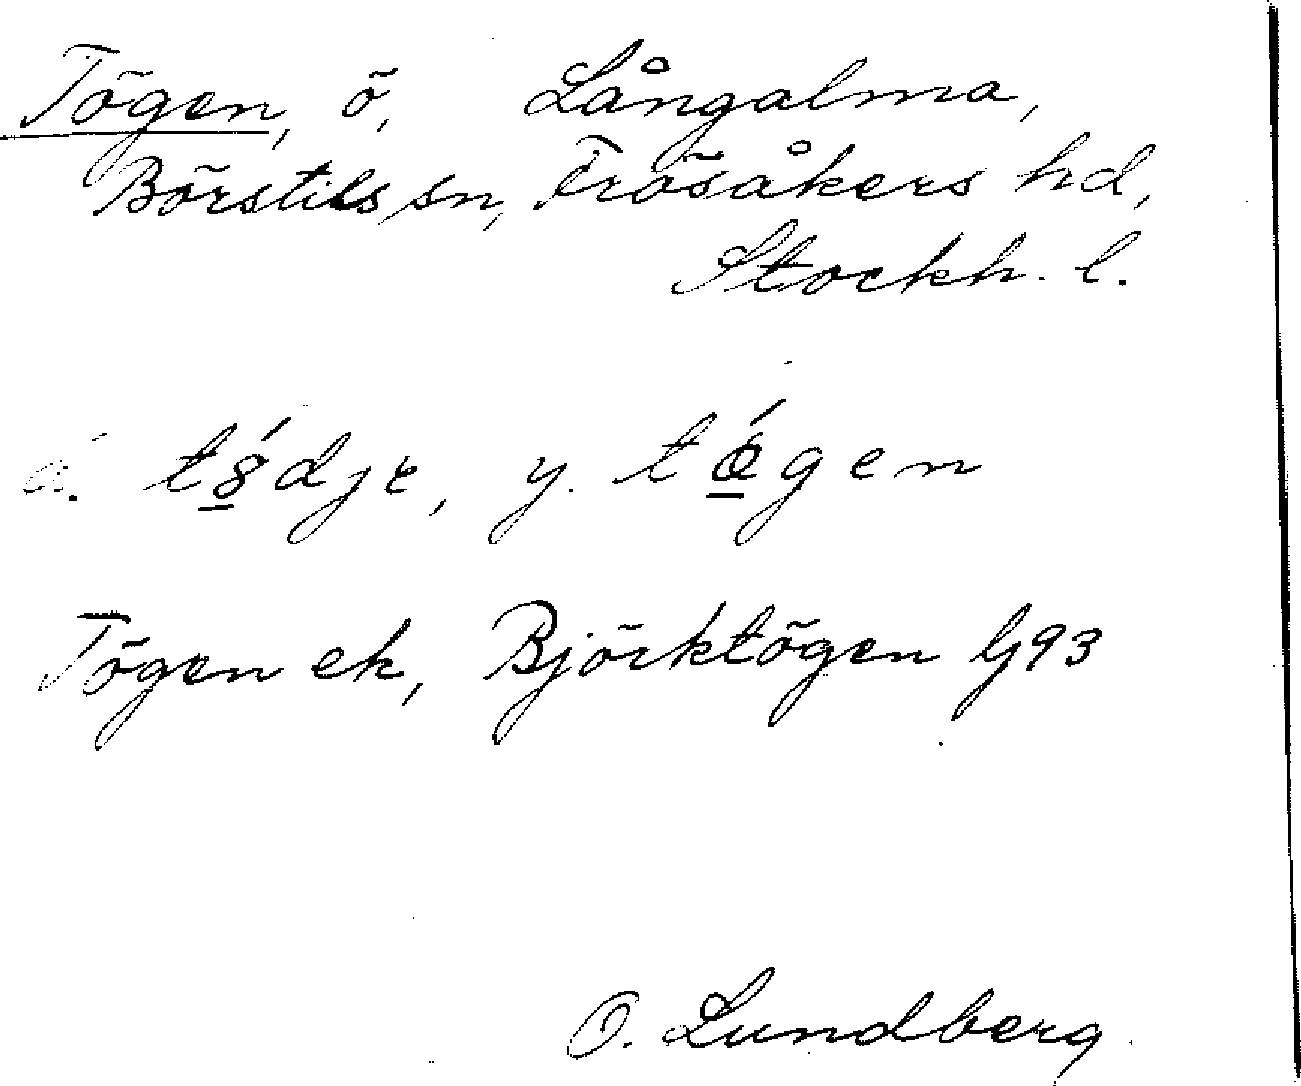 Tögen, ö, Långalma,
Börstils sn, Frösåkers hd,
Stockh. l.
ä. tödje, y. tǿgen
Tögen ek, Björktögen Gj93
O. Lundberg